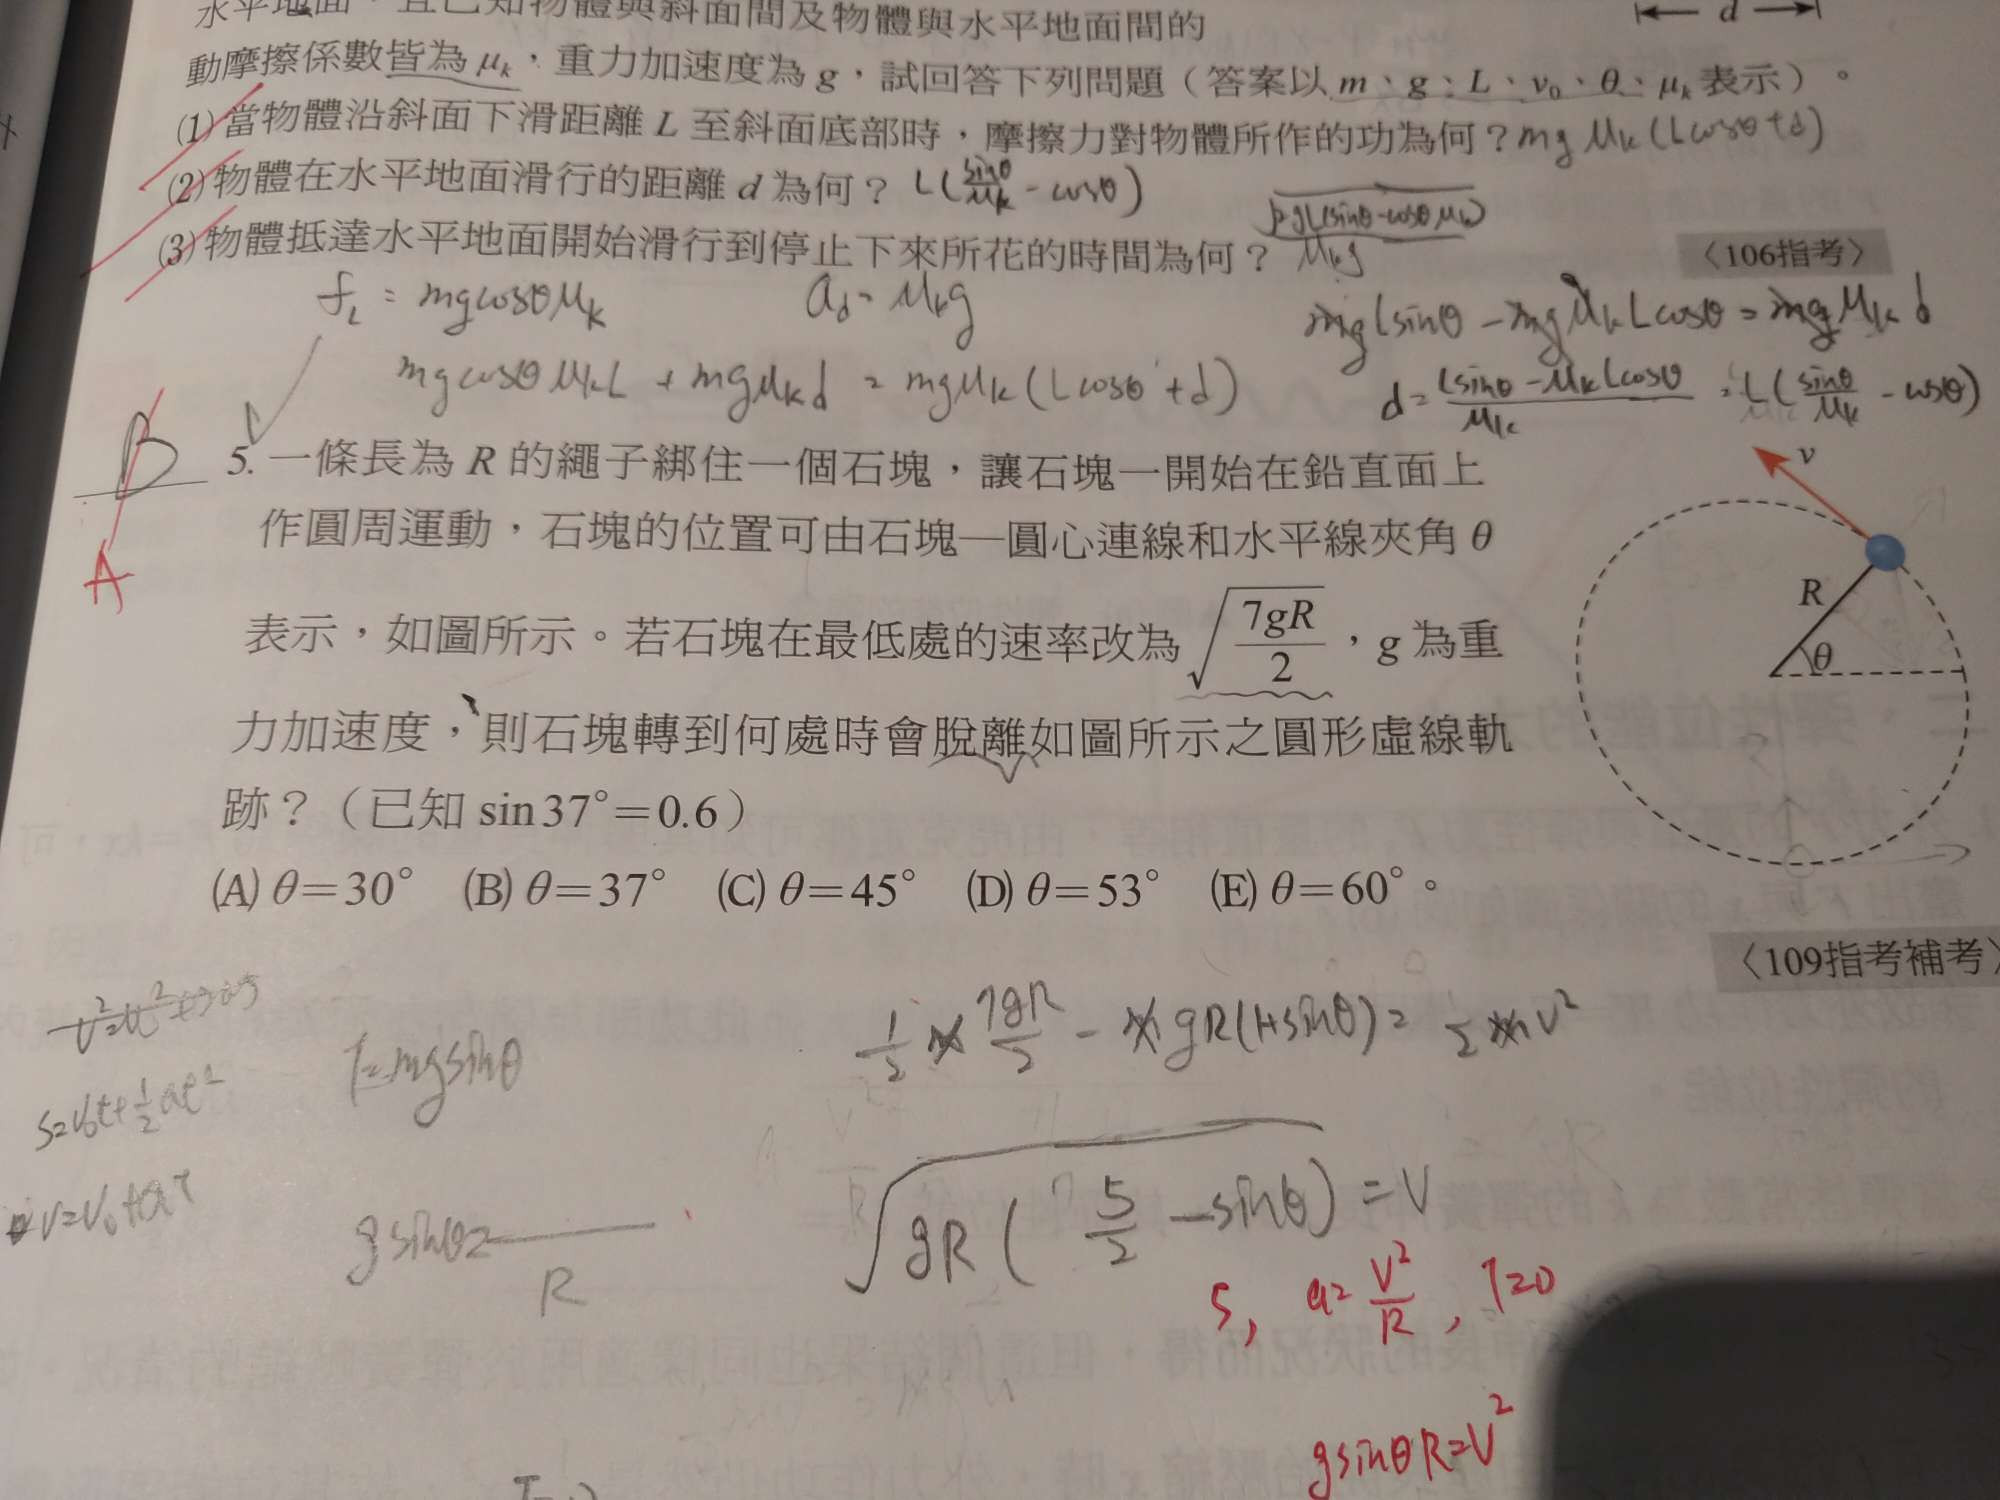 水平地面,且已知物體與斜面間及物體與水平地面間的
d
動摩擦係數皆為 μk,重力加速度為 g,試回答下列問題(答案以 m、g、L、v0、θ、μk 表示)。
(1) 當物體沿斜面下滑距離 L 至斜面底部時,摩擦力對物體所作的功為何? mg μk (L cosθ + d)
(2) 物體在水平地面滑行的距離 d 為何? L(sinθ/μk - cosθ)
(3) 物體抵達水平地面開始滑行到停止下來所花的時間為何? √2gL(sinθ-cosθμk)/μkg
〈106指考〉
fL = mgcosθμk
ad = μkg
mgLsinθ - mgμkLcosθ = mgμkd
mgcosθμkL + mgμkd = mgμk(Lcosθ+d)
d = Lsinθ - μkLcosθ/μk = L(sinθ/μk - cosθ)
B
A
5. 一條長為 R 的繩子綁住一個石塊,讓石塊一開始在鉛直面上
作圓周運動,石塊的位置可由石塊—圓心連線和水平線夾角 θ
表示,如圖所示。若石塊在最低處的速率改為 √7gR/2,g 為重
力加速度,則石塊轉到何處時會脫離如圖所示之圓形虛線軌
跡?(已知 sin37°=0.6)
(A) θ=30° (B) θ=37° (C) θ=45° (D) θ=53° (E) θ=60°。
v
R
θ
〈109指考補考〉
1/2 m 7gR/2 - mgR(1+sinθ) = 1/2 mv²
T=mgsinθ
s=v0t+1/2at²
v=v0+at
gsinθ= /R
√gR(5/2 - sinθ) = V
5, a=V²/R, T=0
gsinθR=V²